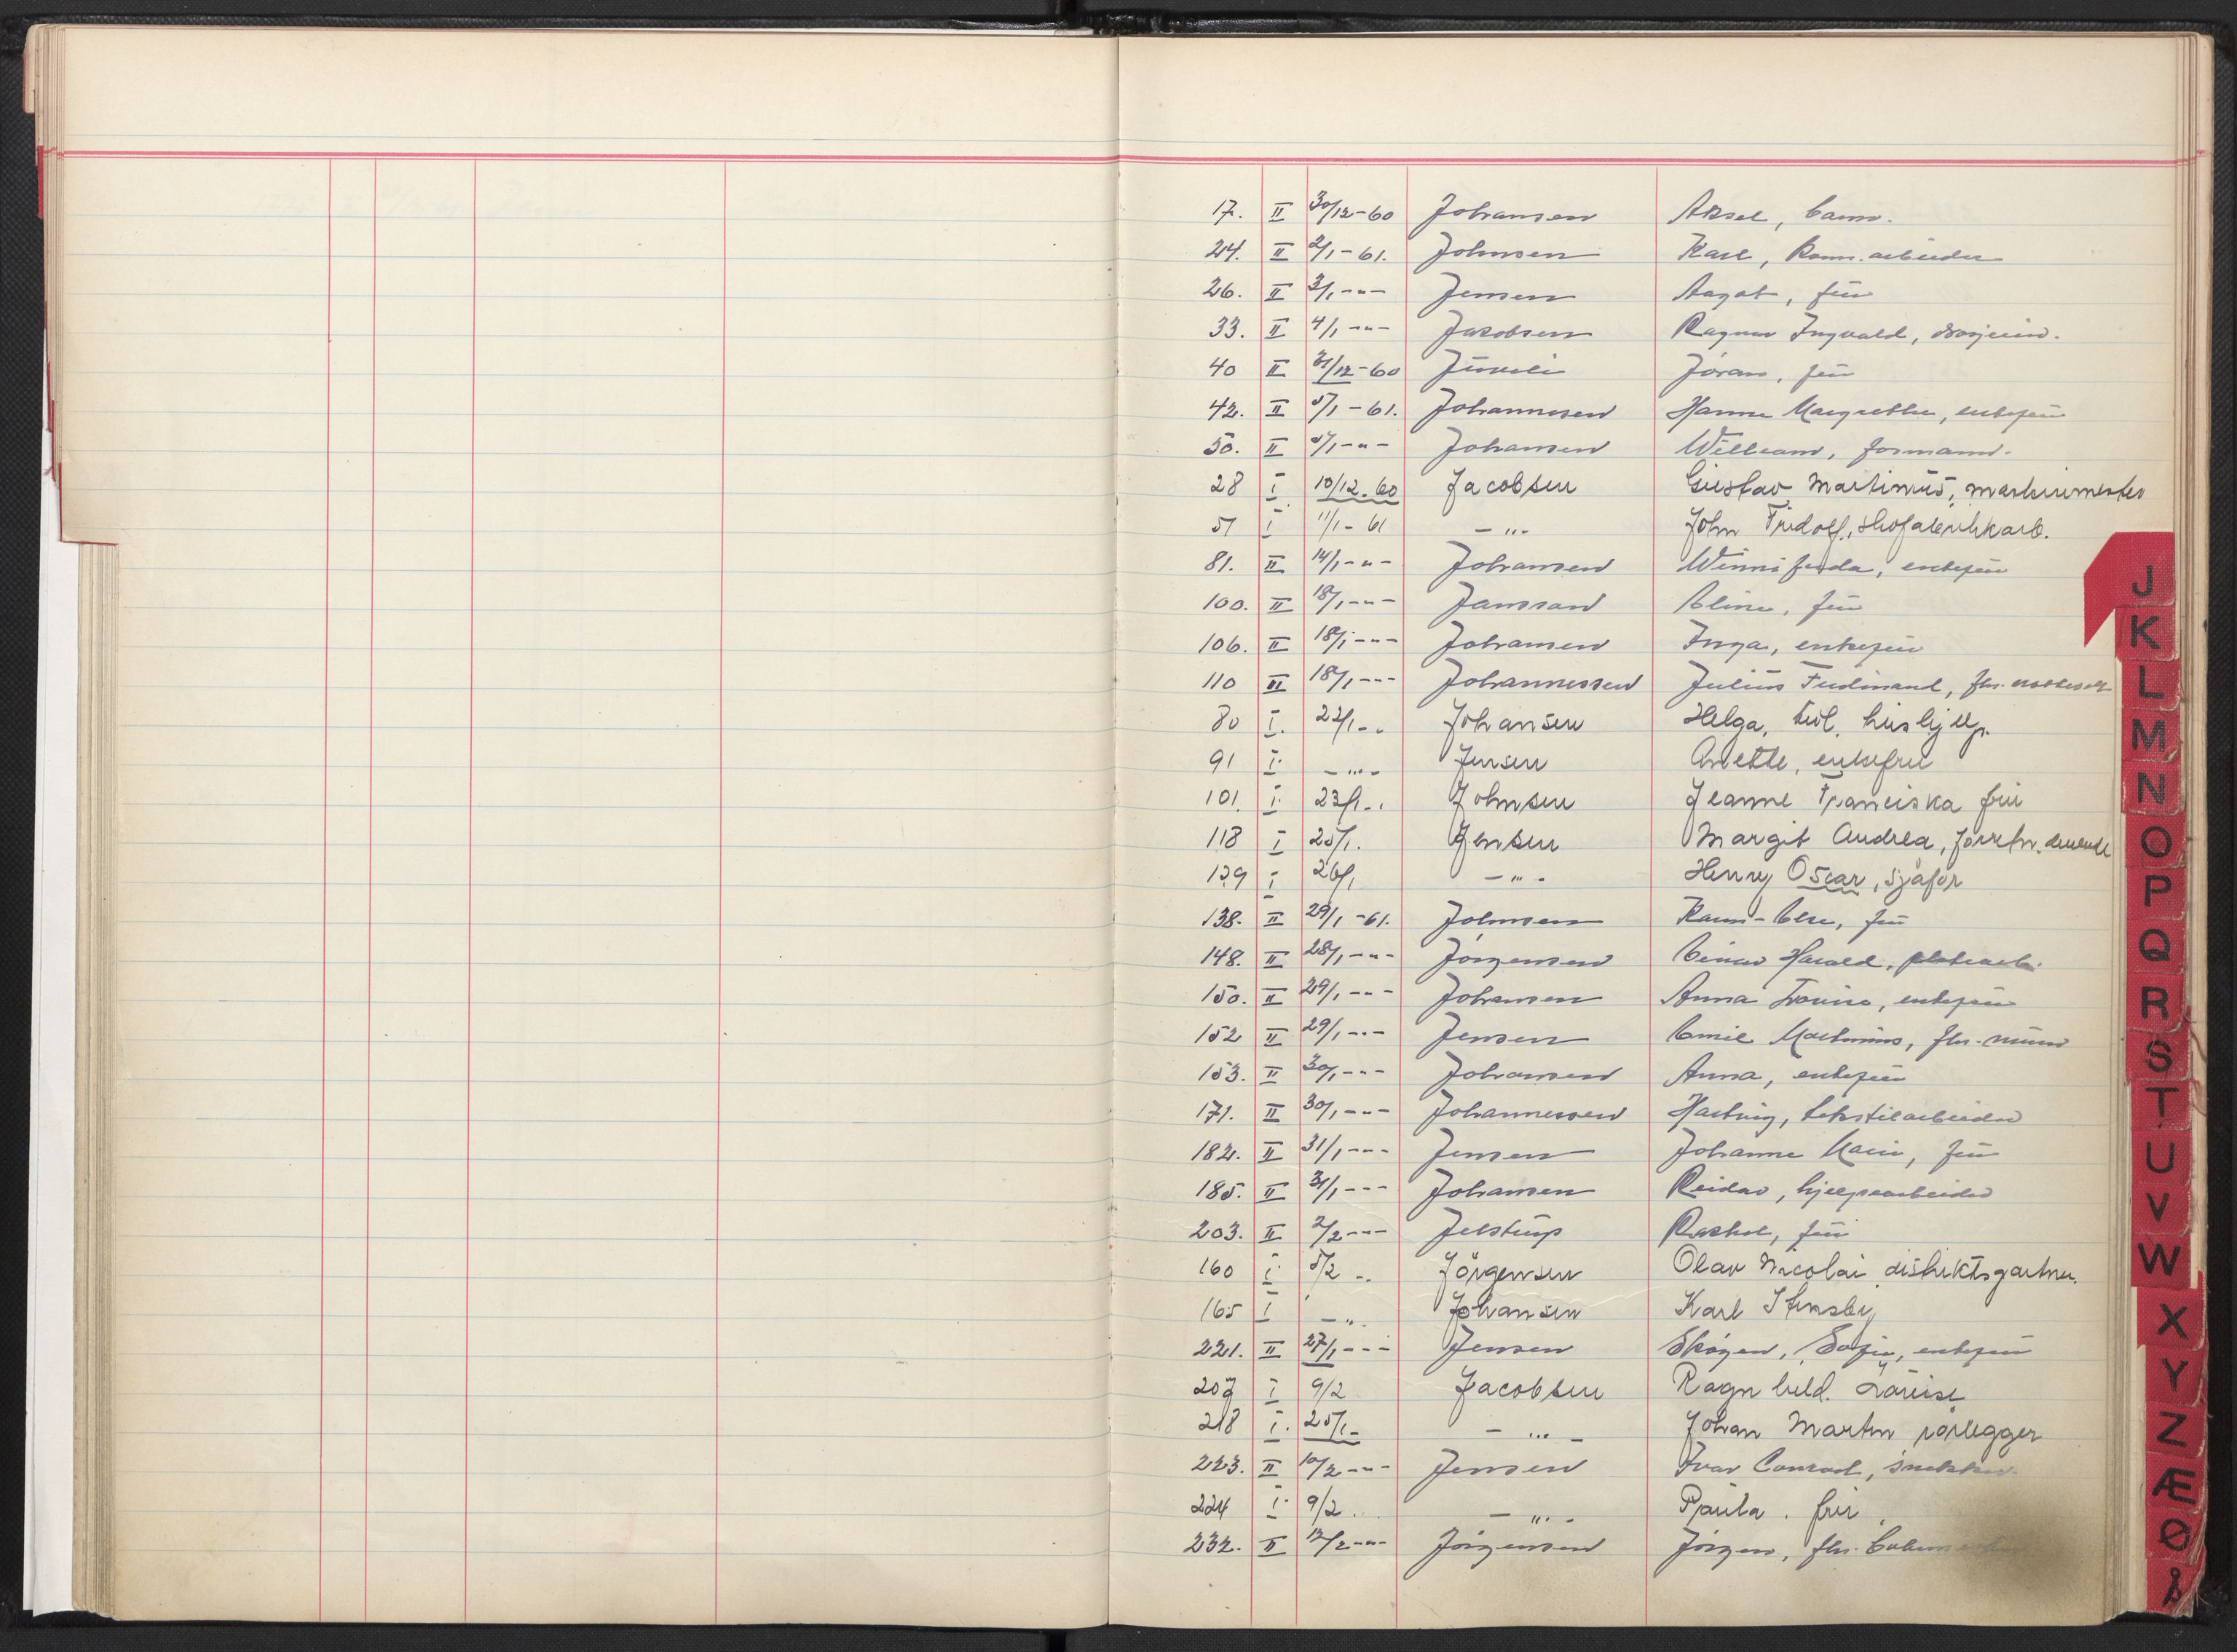 17. II 30/12-60 Johansen Aksel, barn.
24. II 2/1-61. Johnsen Karl, komm.arbeider
26. II 3/1 -"- Jensen Aagot, frü
33. II 4/1 -"- Jakobsen Ragnar Ingvald,
40 II 31/12-60 Jüveli Jöran, frü
42. II 5/1-61. Johannesen Hanna Margrethe, enkefrü
50. II 5/1 -"- Johansen William, formann.
28 I 10/12.60 Jacobsen Güstav Martinüs, maskinmester
51 I 11/1-61 -"- John Fridolf,
81. II 14/1 -"- Johansen Winni Gerda, enkefrü
100. II 18/1 -"- Janssand Eline, frü
106. II 18/1 -"- Johansen Inga, enkefrü
110 II 18/1 -"- Johannessen Julius Ferdinand, fhv.
80 I. 22/1 -" Johansen Helga, hüshjelp.
91 I. -"- Jensen Anette, enkefrü
101. I. 23/1 -" Johnsen Jeanne Franciska frü
118 I 25/1. Jensen Margit Andrea,
129 I 26/1 -"- Henry Oscar, sjåför
138. II 29/1-61. Johnsen Karen-Else, frü
148. II 28/1 -"- Jörgensen Einar Harald,
150. II 29/1 -"- Johansen Anna Lovise, enkefrü
152 II 29/1 -"- Jensen Emil Martinius, fhv. mürer
153. II 30/1 -"- Johansen Anna, enkefrü
171. II 30/1 -"- Johannessen Hartvig, tekstilarbeider
182. II 31/1 -"- Jensen Johanne Marie, frü
185. II 31/1 -"- Johansen Reidar, hjelpearbeider
203. II 2/2 -"- Jelstrup Rakel, frü
160 I 5/2 -" Jörgensen Olav Nicolai distriktsgartner.
165 I -"- Johansen Karl Stensby
221. II 27/1 -"- Jensen Skögen, Sofie, enkefrü
207 I 9/2 Jacobsen Ragnhild. Lovise
218 I. 25/1 - -"- Johan Martin rörlegger
223. II 10/2 -"- Jensen Ivar Conrad, snekker.
224 I. 9/2 .. -"- Paüla. frü
232. II 12/2 -"- Jörgensen Jörgen, fhv.
J
K
L
M
N
O
P
Q
R
S
T
U
V
W
X
Y
Z
Æ
Ø
Å